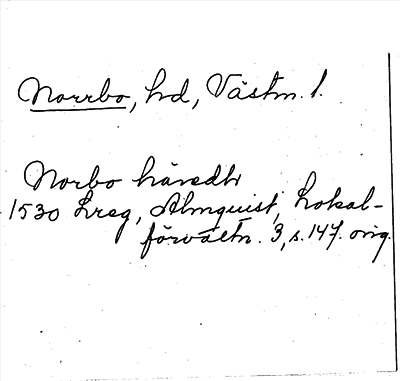 Norrbo, hd, Västm. l.
Norbo häredh
1530 Lreg, Almquist, Lokal-
förvaltn. 3, s. 147. orig.